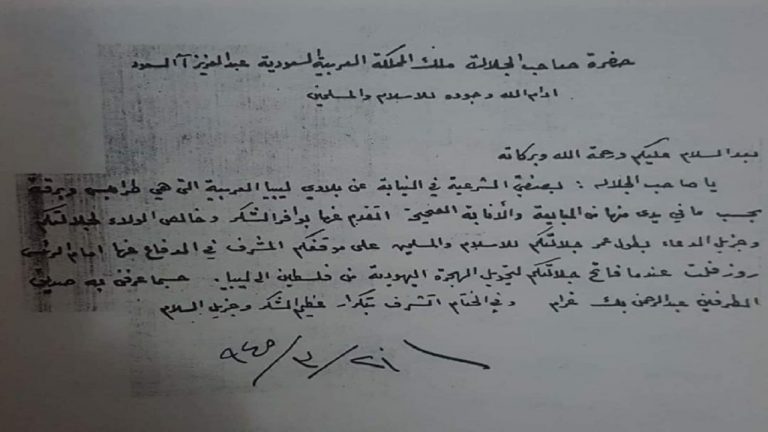 حضرة صاحب الجلالة ملك المملكة العربية السعودية عبدالعزيز آل السعود
ادام الله وجوده للاسلام والمسلمين
بعد السلام عليكم ورحمة الله وبركاته
يا صاحب الجلاله : بصفتي الشرعية في النيابة عن بلادي ليبيا العربية التي هي طرابلس وبرقة
بحسب ما في يدى منها من المبايعة والأنابة الصحيحة اتقدم عنها بوافر الشكر وخالص الولاء لجلالتكم
وجزيل الدعاء بطول عمر جلالتكم للاسلام والمسلمين على موقفكم المشرف في الدفاع عنها امام الرئيس
روزفلت عندما فاتح جلالتكم لتحويل الهجرة اليهودية من فلسطين الى ليبيا. حسبما عرفني به صديق
الطرفين عبدالرحمن بك عزام وفي الختام اتشرف بتكرار عظيم الشكر وجزيل السلام
٢١/٣/٩٤٥